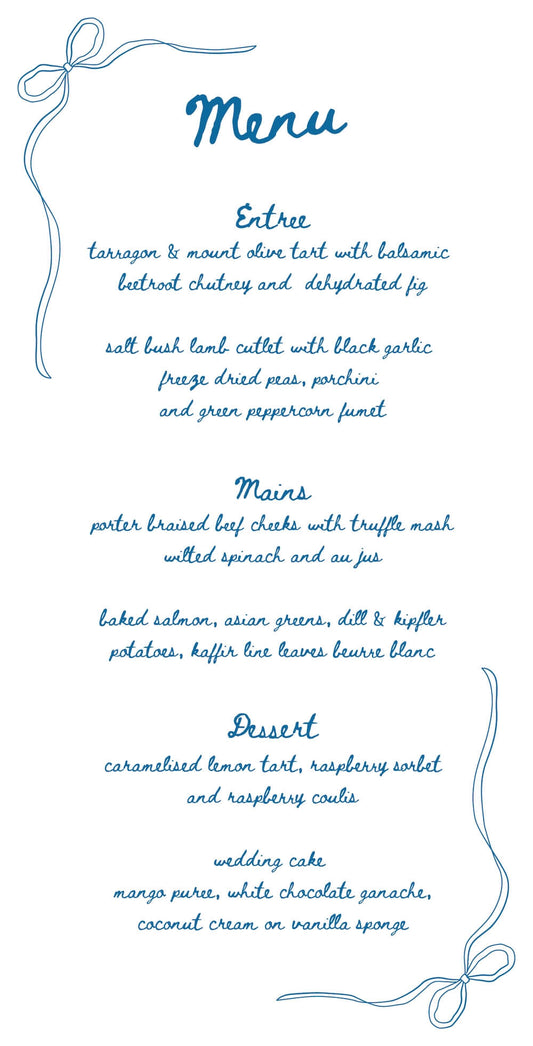 Menu
Entree
tarragon & mount olive tart with balsamic
beetroot chutney and dehydrated fig
salt bush lamb cutlet with black garlic
freeze dried peas, porchini
and green peppercorn fumet
Mains
porter braised beef cheeks with truffle mash
wilted spinach and au jus
baked salmon, asian greens, dill & kipfler
potatoes, kaffir line leaves beurre blanc
Dessert
caramelised lemon tart, raspberry sorbet
and raspberry coulis
wedding cake
mango puree, white chocolate ganache,
coconut cream on vanilla sponge